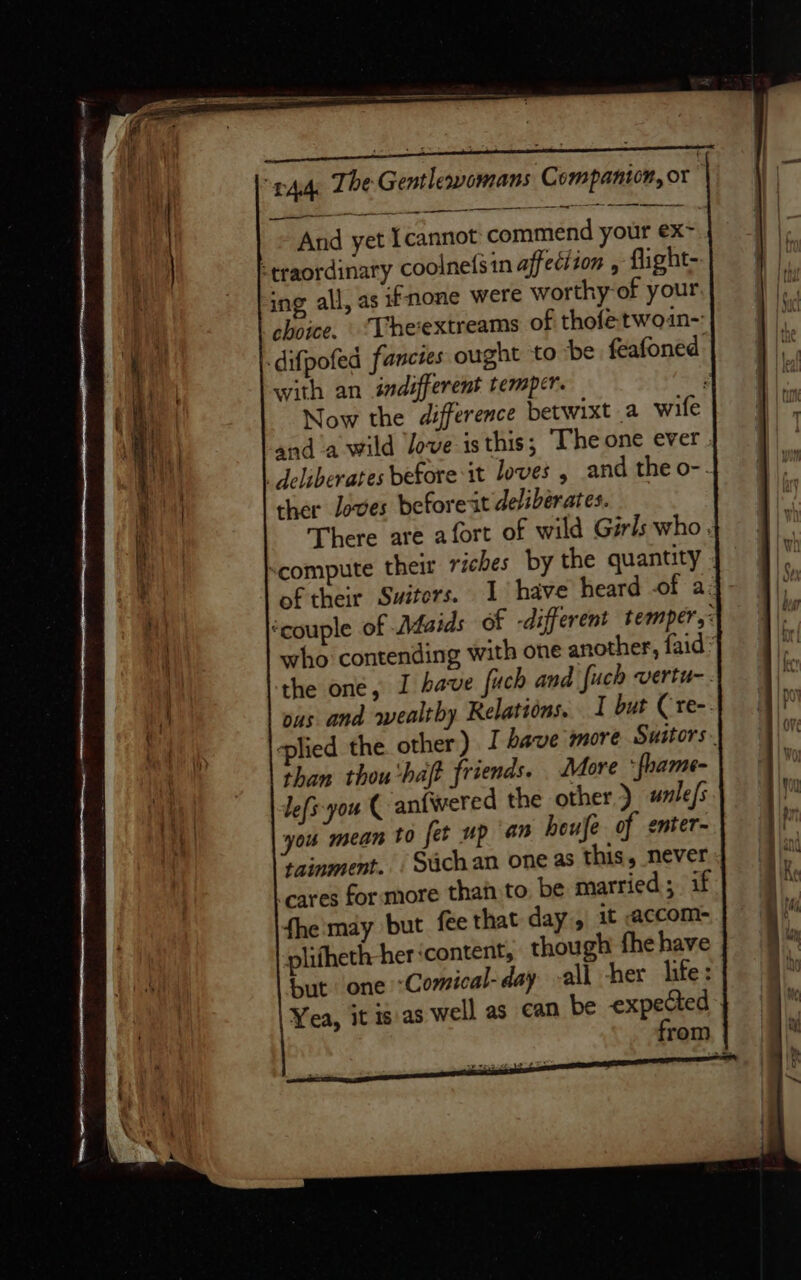 144 The Gentlewomans Companion, or
And yet I cannot commend your ex-
traordinary coolneſs in affection, ſlight-
ing all, as if none were worthy of your
choice. The extreams of thoſe two in-
diſpoſed fancies ought to be ſeaſoned
with an indifferent temper.
Now the difference betwixt a wife
and a wild love is this; The one ever
deliberates before it loves, and the o-
ther loves before it deliberates.
There are a ſort of wild Girls who
compute their riches by the quantity
of their Suitors. I have heard of a
couple of Maids of different temper,
who contending with one another, ſaid
the one, I have ſuch and ſuch vertu-
ous and wealthy Relations. I but (re-
plied the other) I have more Suitors
than thou haſt friends. More ſhame-
leſs you (anſwered the other) unleſs
you mean to ſet up an houſe of enter-
tainment. Such an one as this, never
cares for more than to be married; if
ſhe may but ſee that day, it accom-
pliſheth her content, though ſhe have
but one Comical-day all her life:
Yea, it is as well as can be expected
from